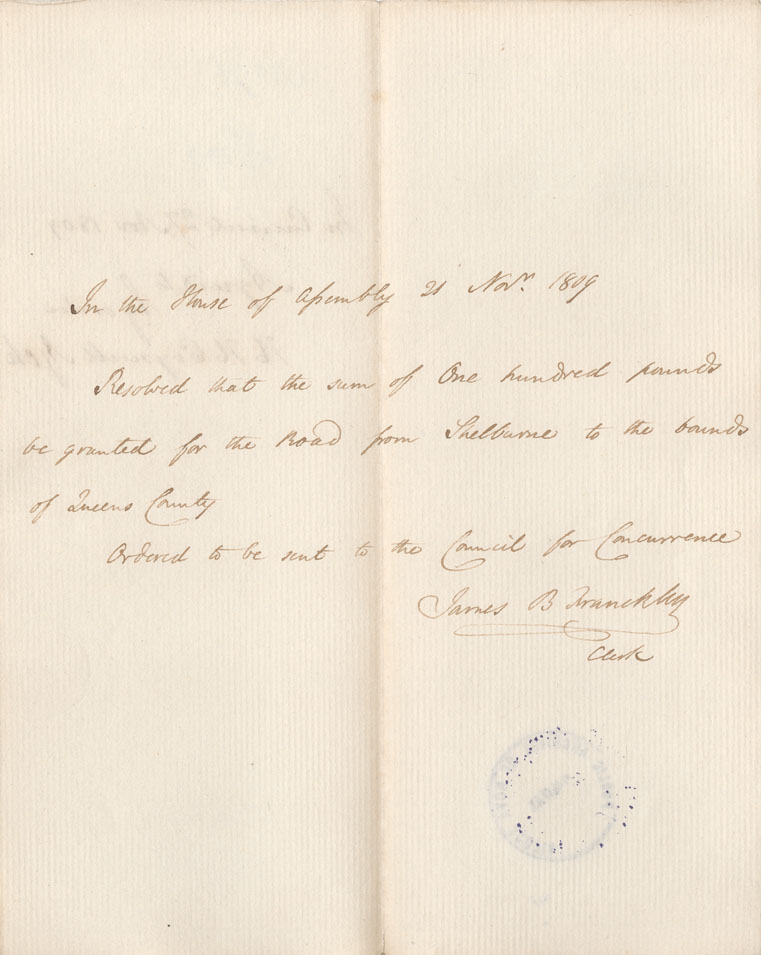 In the House of Assembly 21 Novr. 1809
Resolved that the sum of One hundred pounds
be granted for the Road from Shelburne to the bounds
of Queens County
Ordered to be sent to the Council for Concurrence
James B Franckly
Clerk